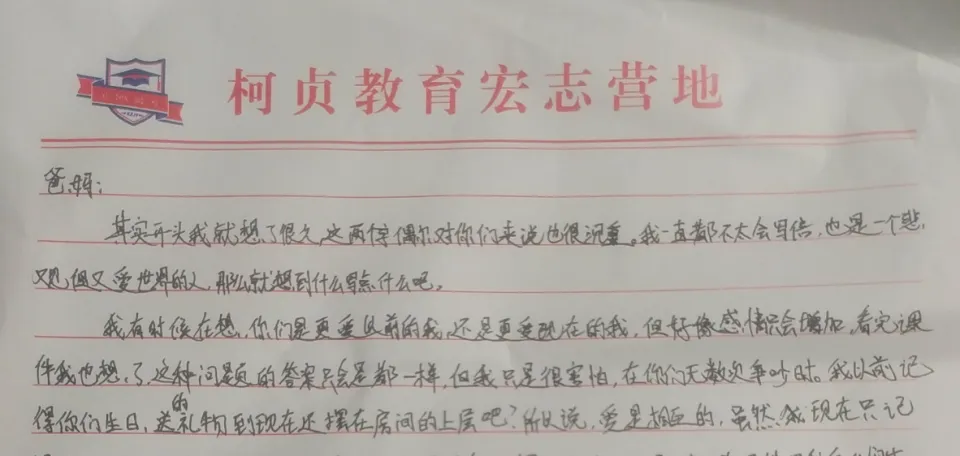 柯贞教育宏志营地
爸.妈:
其实开头我就想了很久,这两字偶尔对你们来说也很沉重。我一直都不太会写信,也是一个悲
观但又爱世界的人,那么就想到什么写点什么吧。
我有时候在想,你们是更爱以前的我,还是更爱现在的我,但好像感情只会增加,看完课
件我也想了,这种问题的答案只会是都一样,但我只是很害怕,在你们无数次争吵时。我以前记
得你们生日,送的礼物到现在还摆在房间的上层吧?所以说,爱是相互的,虽然我现在只记